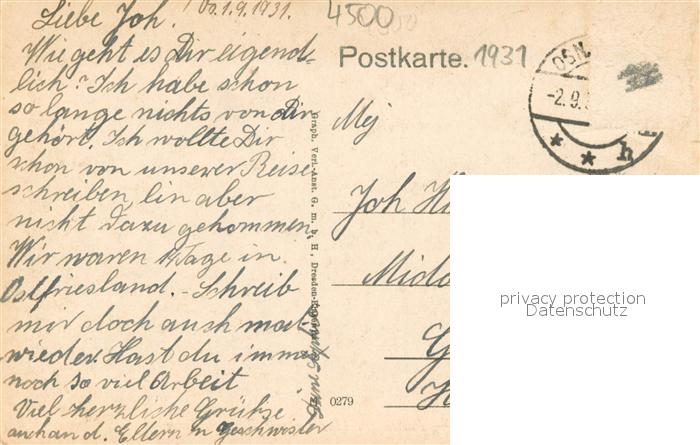 Os. 1.9.1931.
Liebe Joh.!
Wie geht es Dir eigend-
lich? Ich habe schon
so lange nichts von Dir
gehört. Ich wollte Dir
schon von unserer Reise
schreiben, bin aber
nicht dazu gekommen.
Wir waren Tage in
Ostfriesland. - Schreib
mir doch auch mal
wieder. Hast du immer
noch so viel Arbeit
Viel herzliche Grüße
auch and. Eltern u Geschwister
Graph. Verl.-Anst. G. m. b. H., Dresden-
0279
4500
Postkarte. 1931
OSN
-2.9.
h
Mej
Joh
privacy protection
Datenschutz